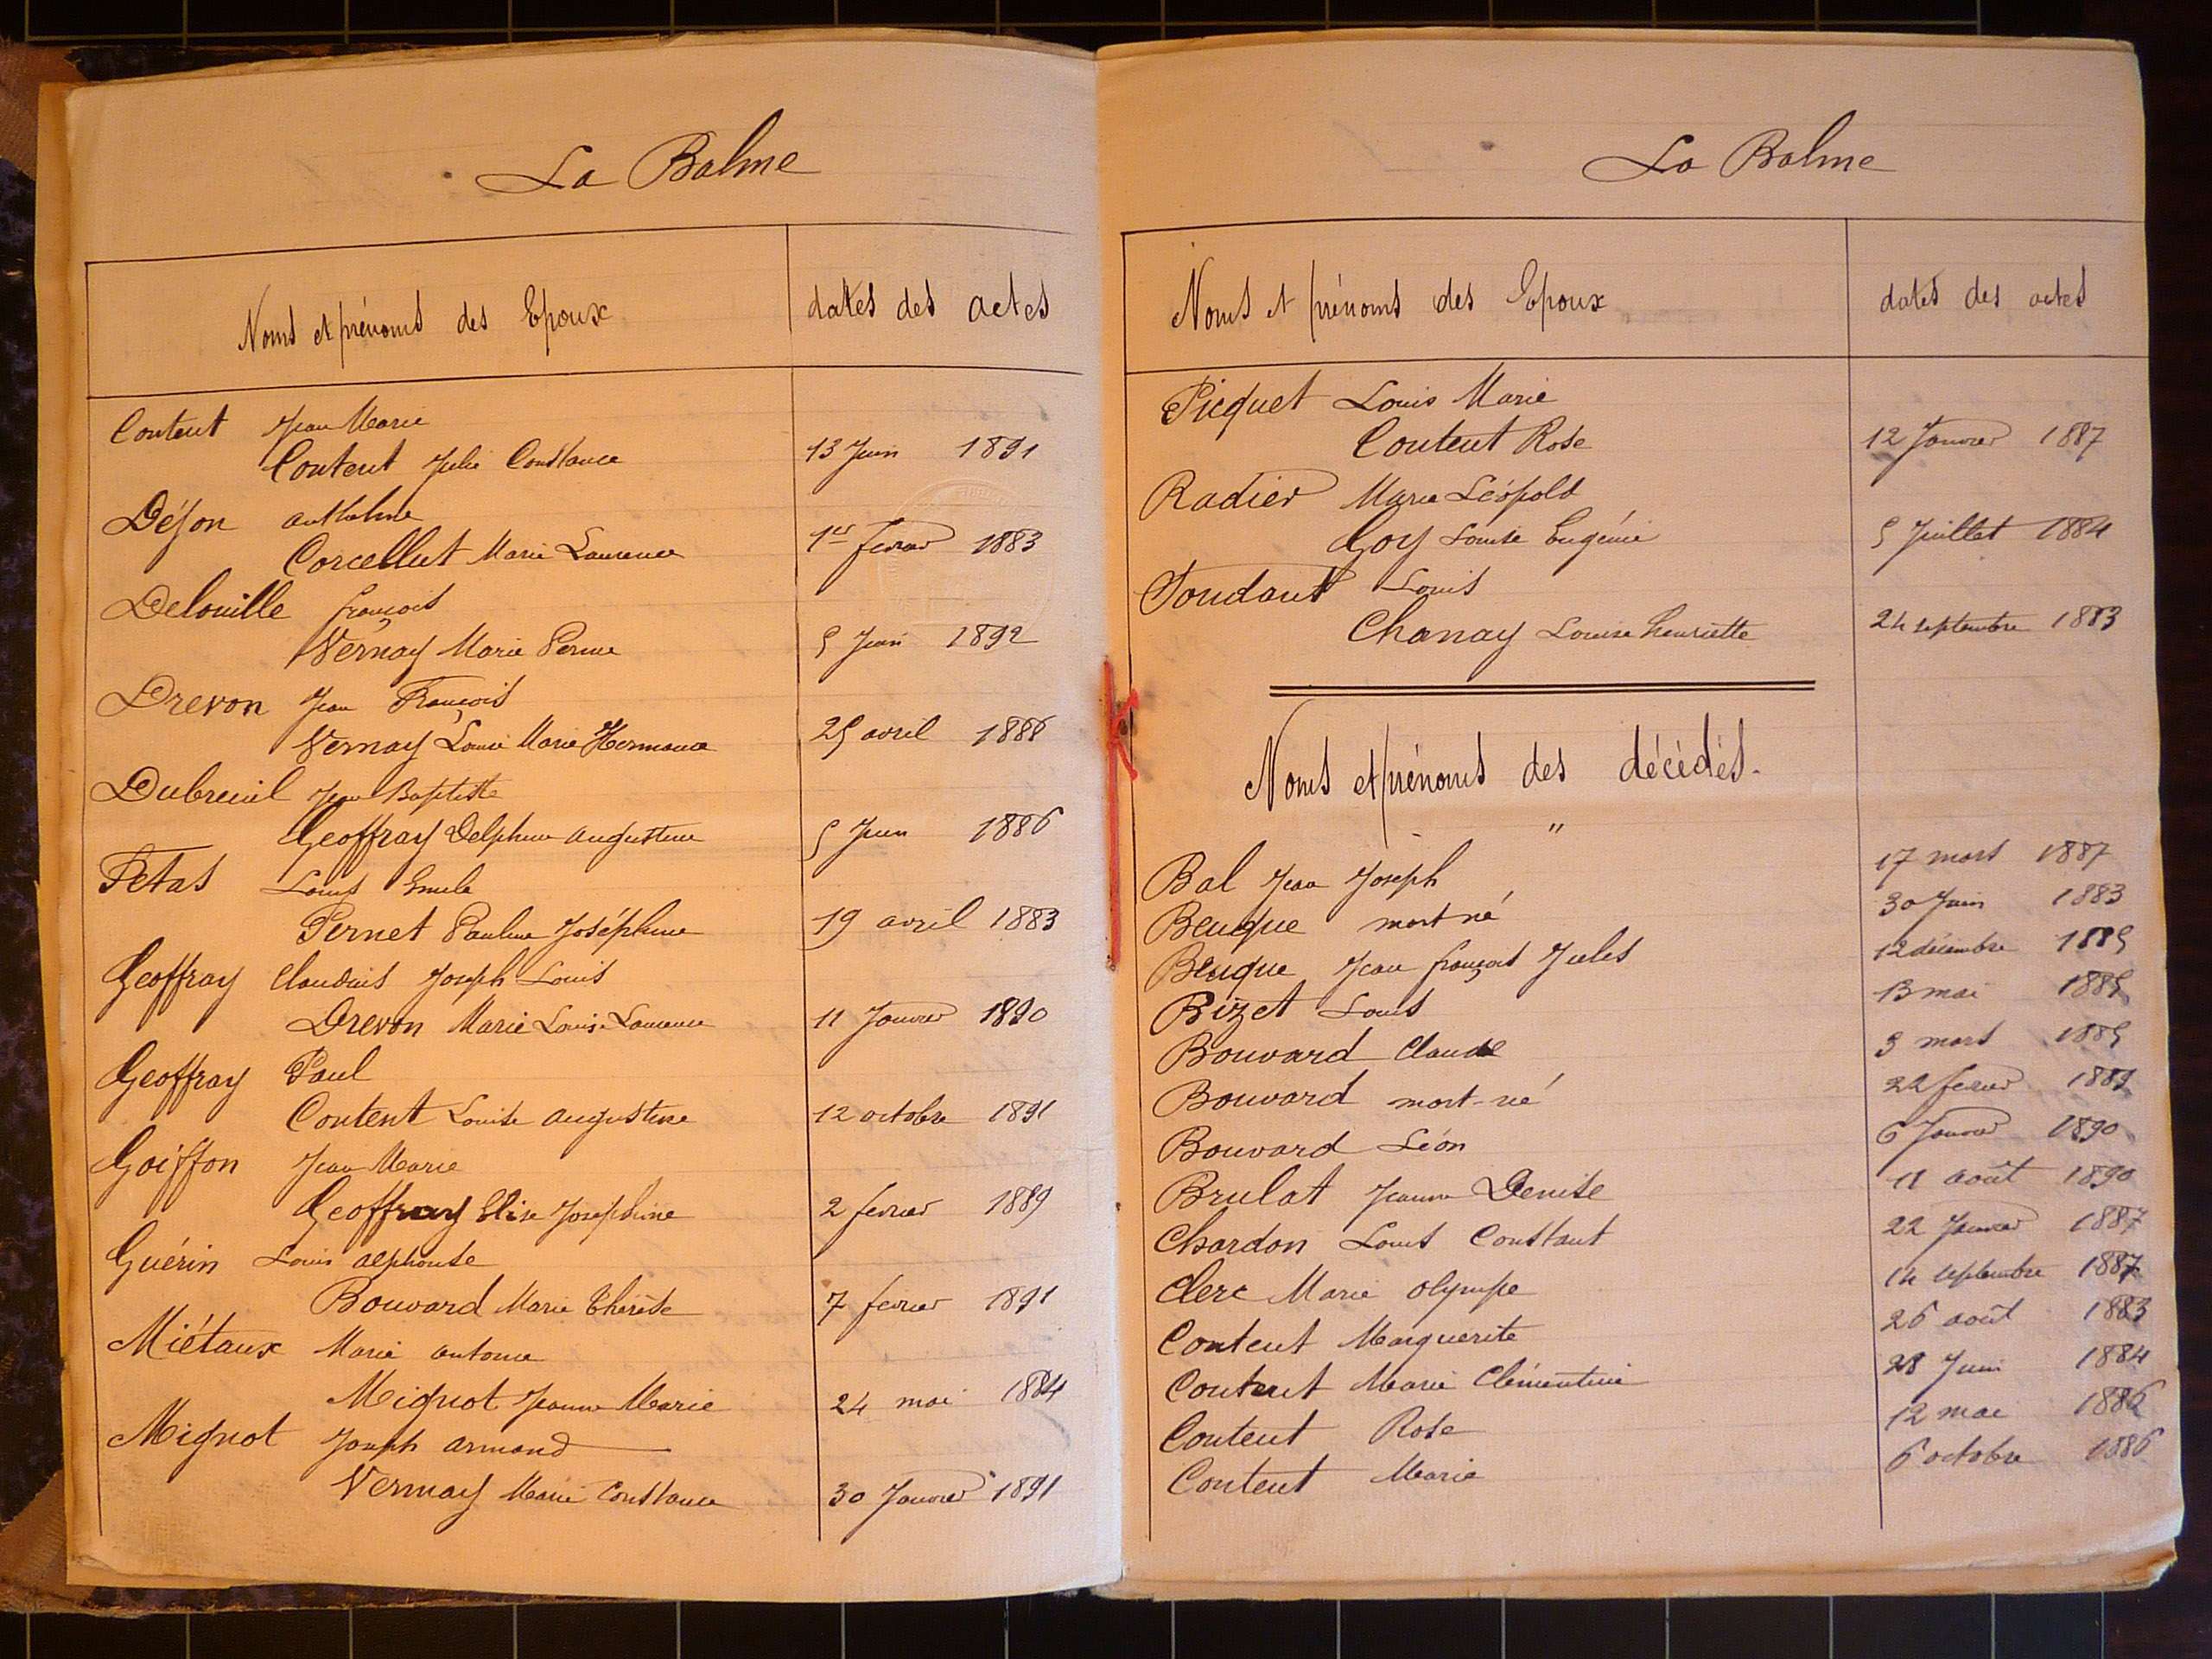 La Balme
Noms et prénoms des Epoux
dates des actes
Content Jean Marie
Content Julie Constance 13 Juin 1891
Déjon anthelme
Corcellut Marie Laurence 1er fevrier 1883
Delouille françois
Vernay Marie Perrine 5 Juin 1892
Drevon Jean François
Vernay Louise Marie Hermance 25 avril 1888
Dubreuil Jean Baptiste
Geoffray Delphine augustine 5 Juin 1886
Fétas Louis Emile
Pernet Pauline Joséphine 19 avril 1883
Geoffray Claudius Joseph Louis
Drevon Marie Louise Laurence 11 Janvier 1890
Geoffray Paul
Content Louise augustine 12 octobre 1891
Goiffon Jean Marie
Geoffray Elise Josephine 2 fevrier 1889
Guérin Louis alphonse
Bouvard Marie Thérèse 7 fevrier 1891
Miétaux Marie antoine
Mignot Jeanne Marie 24 mai 1884
Mignot Joseph armand
Vernay Marie Constance 30 Janvier 1891
La Balme
Noms et prénoms des Epoux
dates des actes
Picquet Louis Marie
Content Rose 12 Janvier 1887
Radier Marie Léopold
Goy Louise Eugénie 5 Juillet 1884
Tondant Louis
Chanay Louise henriette 24 septembre 1883
Noms et prénoms des décédés.
"
Bal Jean Joseph 17 mars 1887
Beuque mort né 30 Juin 1883
Beuque Jean françois Jules 12 décembre 1885
Bizet Louis 13 mai 1885
Bouvard Claude 3 mars 1885
Bouvard mort-né 22 fevrier 1889
Bouvard Léon 6 Janvier 1890
Brulat Jeanne Denise 11 août 1890
Chardon Louis Constant 22 Janvier 1887
Clerc Marie olympe 14 septembre 1887
Content Marguerite 26 août 1883
Content Marie Clémentine 28 Juin 1884
Content Rose 12 mai 1886
Content Marie 6 octobre 1886